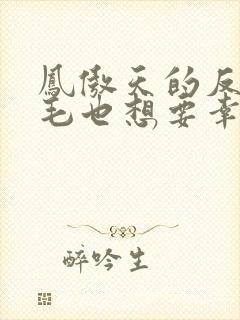 鳳傲天的反
毛也想要幸
醉吟生